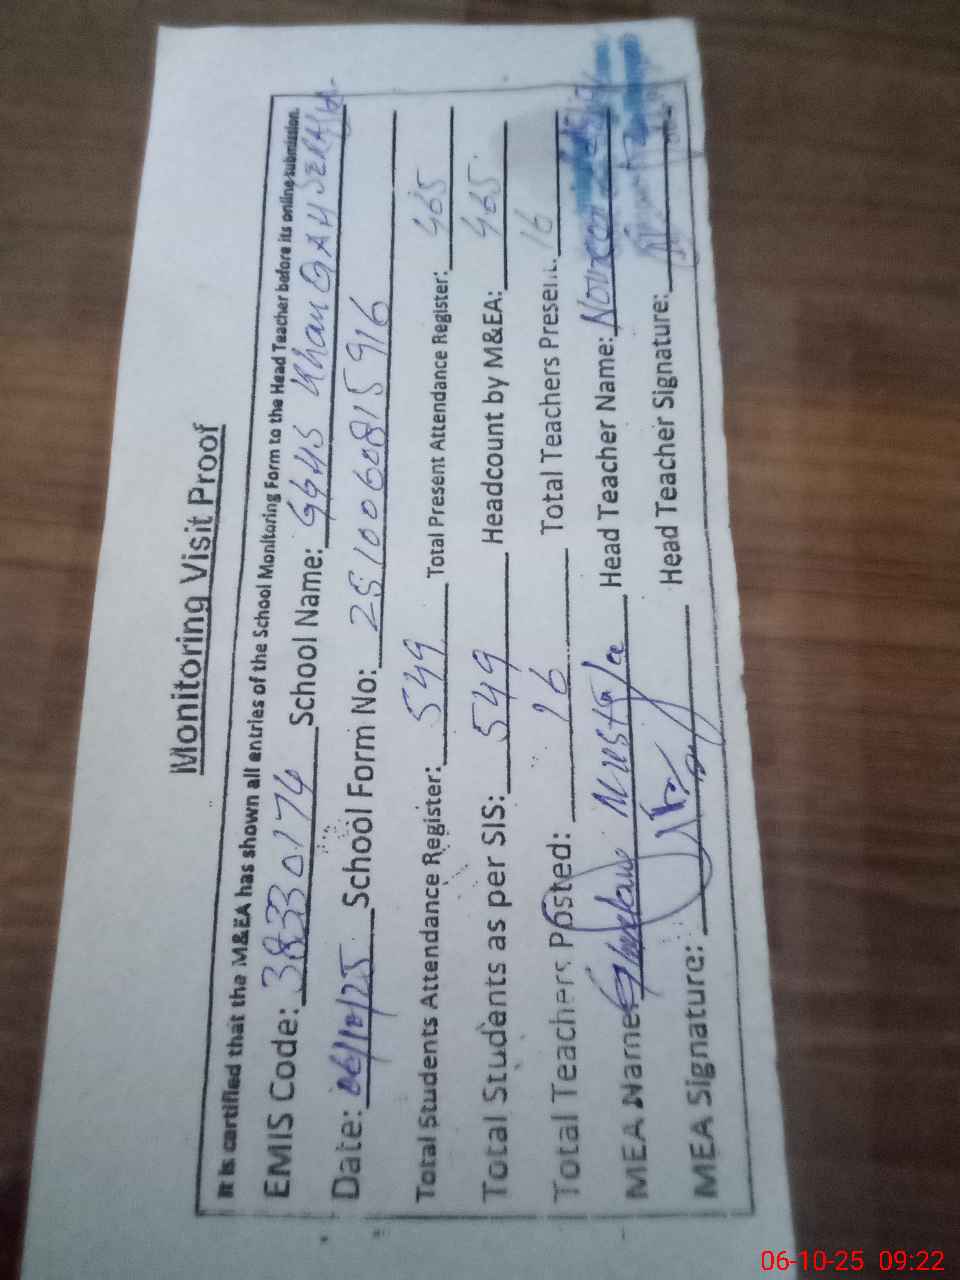 Monitoring Visit Proof
It is certified that the M&EA has shown all entries of the School Monitoring Form to the Head Teacher before its online submission.
EMIS Code: 38330174 School Name: GGHS Khan QAH SERAJIA
Date: 06/10/25 School Form No: 2510060815916
Total Students Attendance Register: 549 Total Present Attendance Register: 465
Total Students as per SIS: 549 Headcount by M&EA: 465
Total Teachers Posted: 16 Total Teachers Present: 16
MEA Name: Ghulam Mustafa Head Teacher Name:
MEA Signature: Head Teacher Signature:
06-10-25 09:22